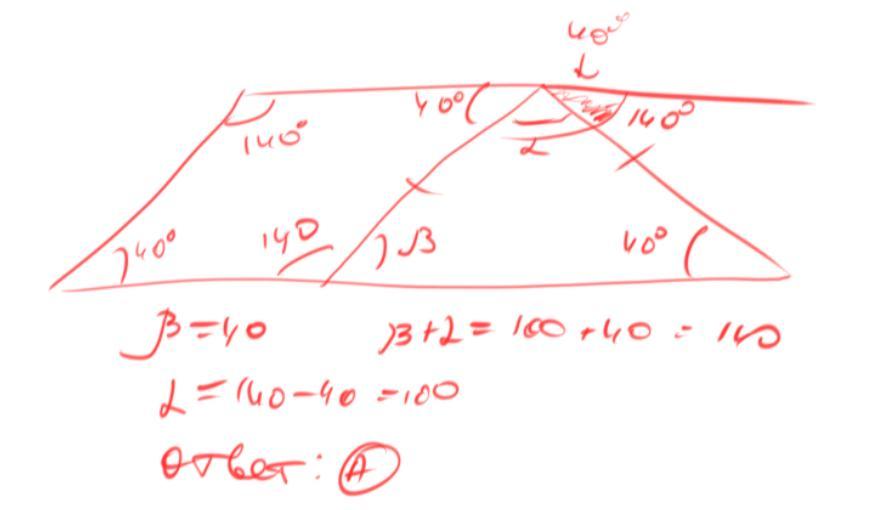 40°
α
40°
140°
140°
α
40°
140
β
40°
β=40
β+α = 100 + 40 = 140
α = 140-40 = 100
Ответ: A